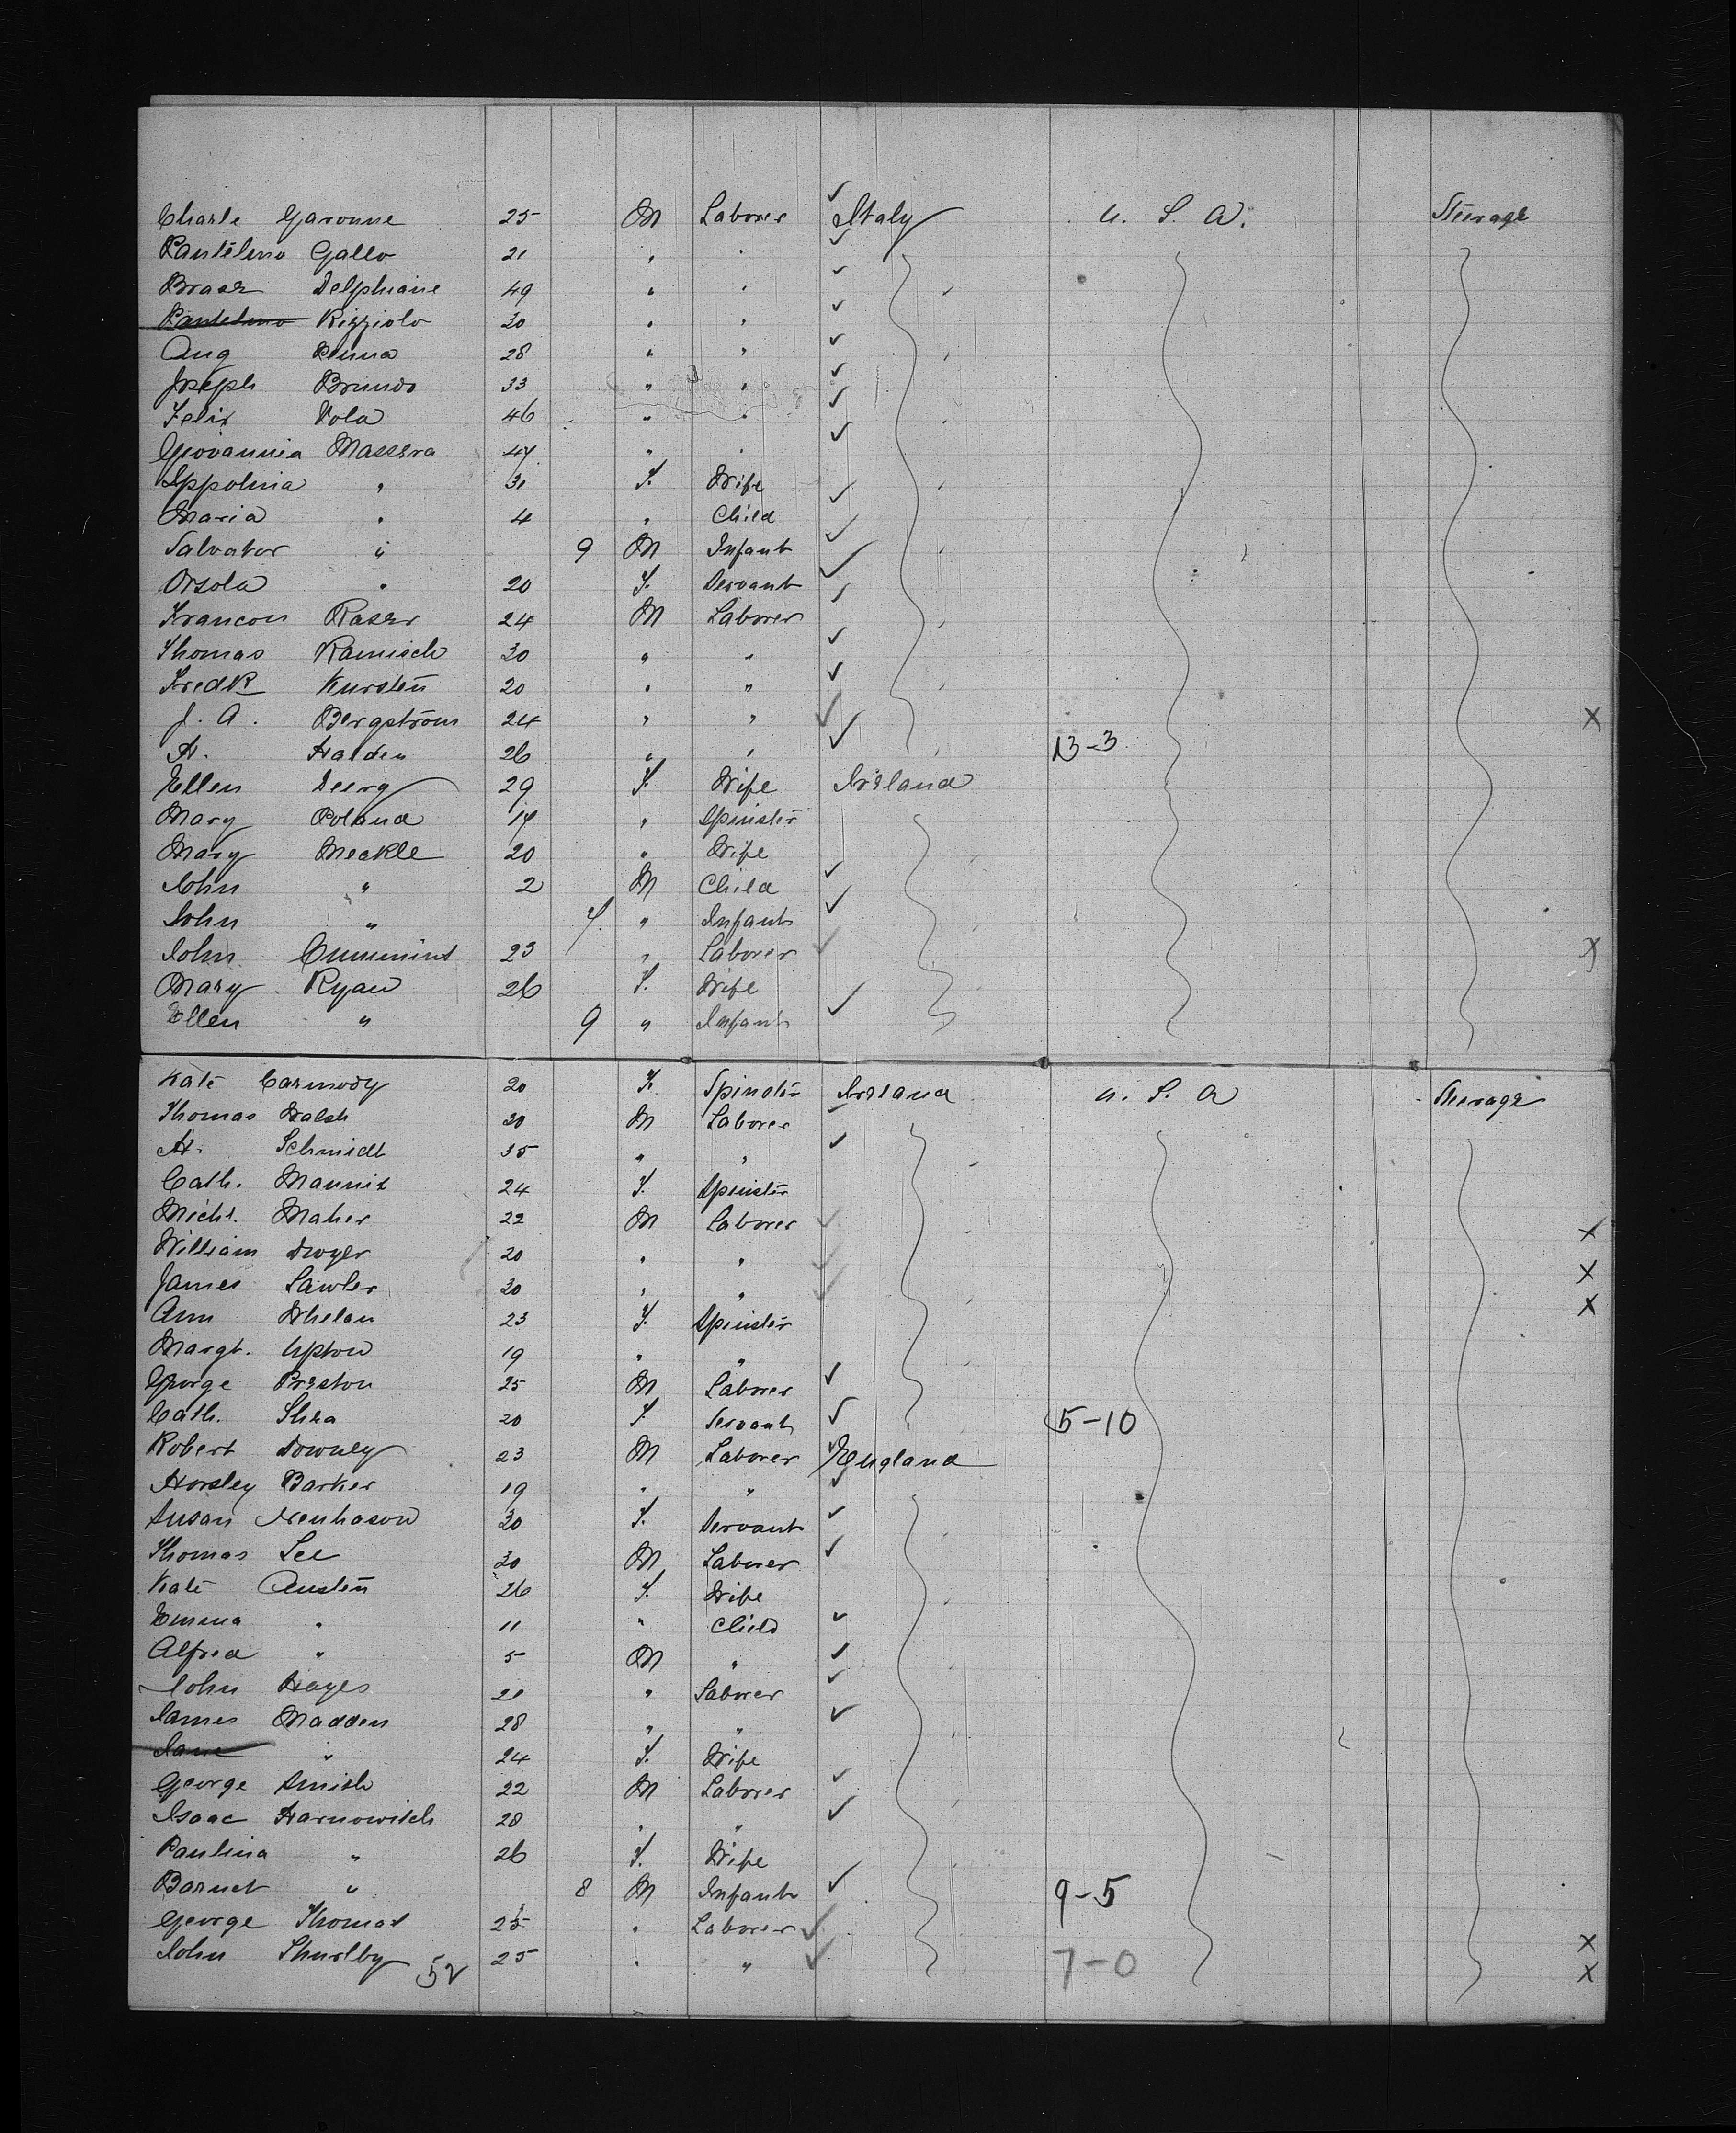 Charle Garonne 25 M Laborer Italy U. S. A. Steerage
Pantelmo Gallo 21 " "
Braar Delphiane 49 " "
Pantelmo Rizziolo 30 " "
Aug Penna 28 " "
Joseph Bruno 33 " "
Felix Vola 46 " "
Giovannia Massera 47 " "
Ippolina " 31 F. Wife
Maria " 4 " Child
Salvator " 9 M Infant
Orsola " 20 F. Servant
Francois Raser 24 M Laborer
Thomas Ramisch 30 " "
Fredk Kursten 20 " "
J. A. Bergstrom 24 " "
H. Halden 26 " " 13-3
Ellen Deery 29 F. Wife Ireland
Mary Poland 17 " Spinster
Mary Meckle 20 " Wife
John " 2 M Child
John " 7. " Infant
John Cummins 23 " Laborer
Mary Ryan 26 F. Wife
Ellen " 9 " Infant
Kate Carmody 20 F. Spinster Ireland U. S. A Steerage
Thomas Walsh 30 M Laborer
H. Schmidt 35 " "
Cath. Mannix 24 F. Spinster
Michl. Maher 22 M Laborer X
William Dwyer 20 " " X
James Lawler 30 " " X
Ann Whelan 23 F. Spinster
Margt. Upton 19 " "
George Preston 25 M Laborer
Cath. Shea 20 F Servant 5-10
Robert Downey 23 M Laborer England
Horsley Barker 19 " "
Susan 30 F. Servant
Thomas Lee 30 M Laborer
Kate Austen 26 F. Wife
Emma " 11 " Child
Alfred " 5 M "
John Hayes 21 " Laborer
James Madden 28 " "
Jane " 24 F. Wife
George Smith 22 M Laborer
Isaac Harnowitch 28 " "
Paulina " 26 F. Wife
Barnet " 8 M Infant 9-5
George Thomas 25 " Laborer X
John Thurlby 52 25 " " 7-0 X